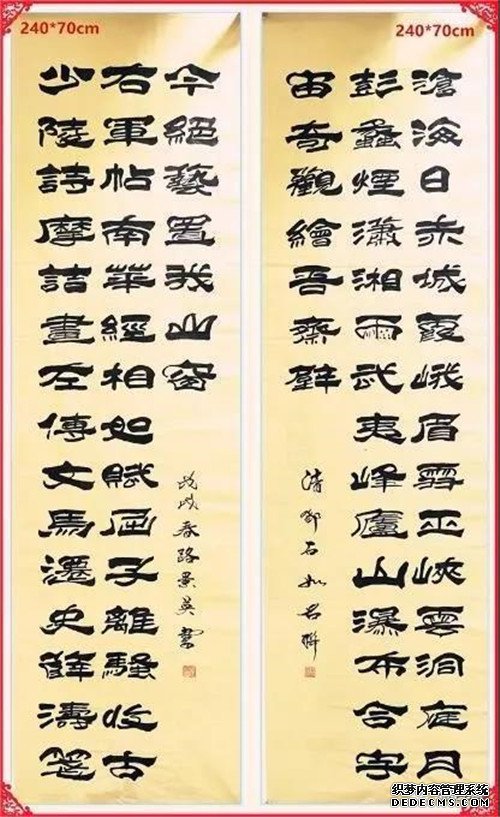 240*70cm
滄海日赤城霞峨眉雪巫峽雲洞庭月
彭蠡煙瀟湘雨武夷峰廬山瀑布合宇
宙奇觀繪吾齋壁
清鄧石如名聯
240*70cm
少陵詩摩詰畫左傳文馬遷史薛濤箋
右軍帖南華經相如賦屈子離騷收古
今絕藝置我山窗
戊戌春路景英書
织梦内容管理系统
DEDECMS.COM